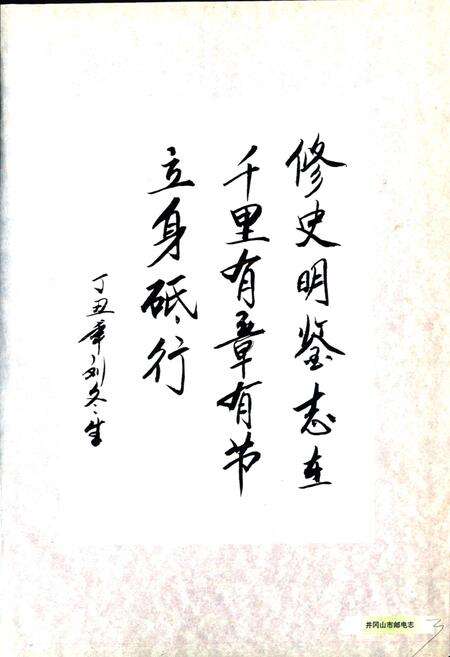 修史明鉴志在
千里有章有节
立身砥行
丁丑年刘冬生
井冈山市邮电志
3